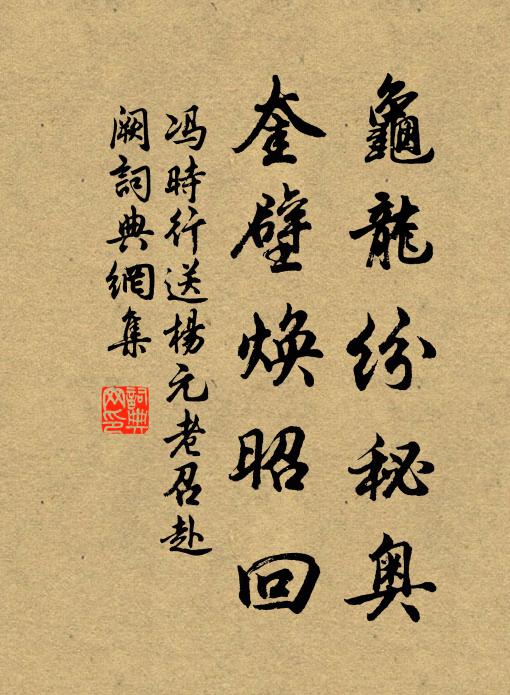 龜龍紛秘奧
奎壁煥昭回
馮時行送楊元老召赴
闕詞典網集
詞典
网印